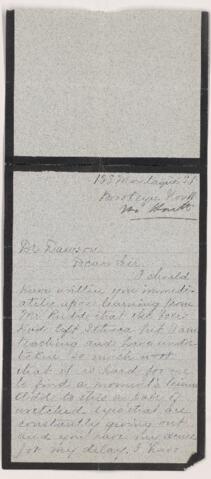 193 Montague St
Brooklyn
Dr Dawson
Dear Sir
I should
have written you immedi-
ately upon learning from
Mr that
had left Ithaca but I am
teaching and have under-
taken so much work
that it is hard for me
to find a moment's leisure
Add to this a pair of
wretched eyes that are
constantly giving out
and you have my excuse
for my delay. I have